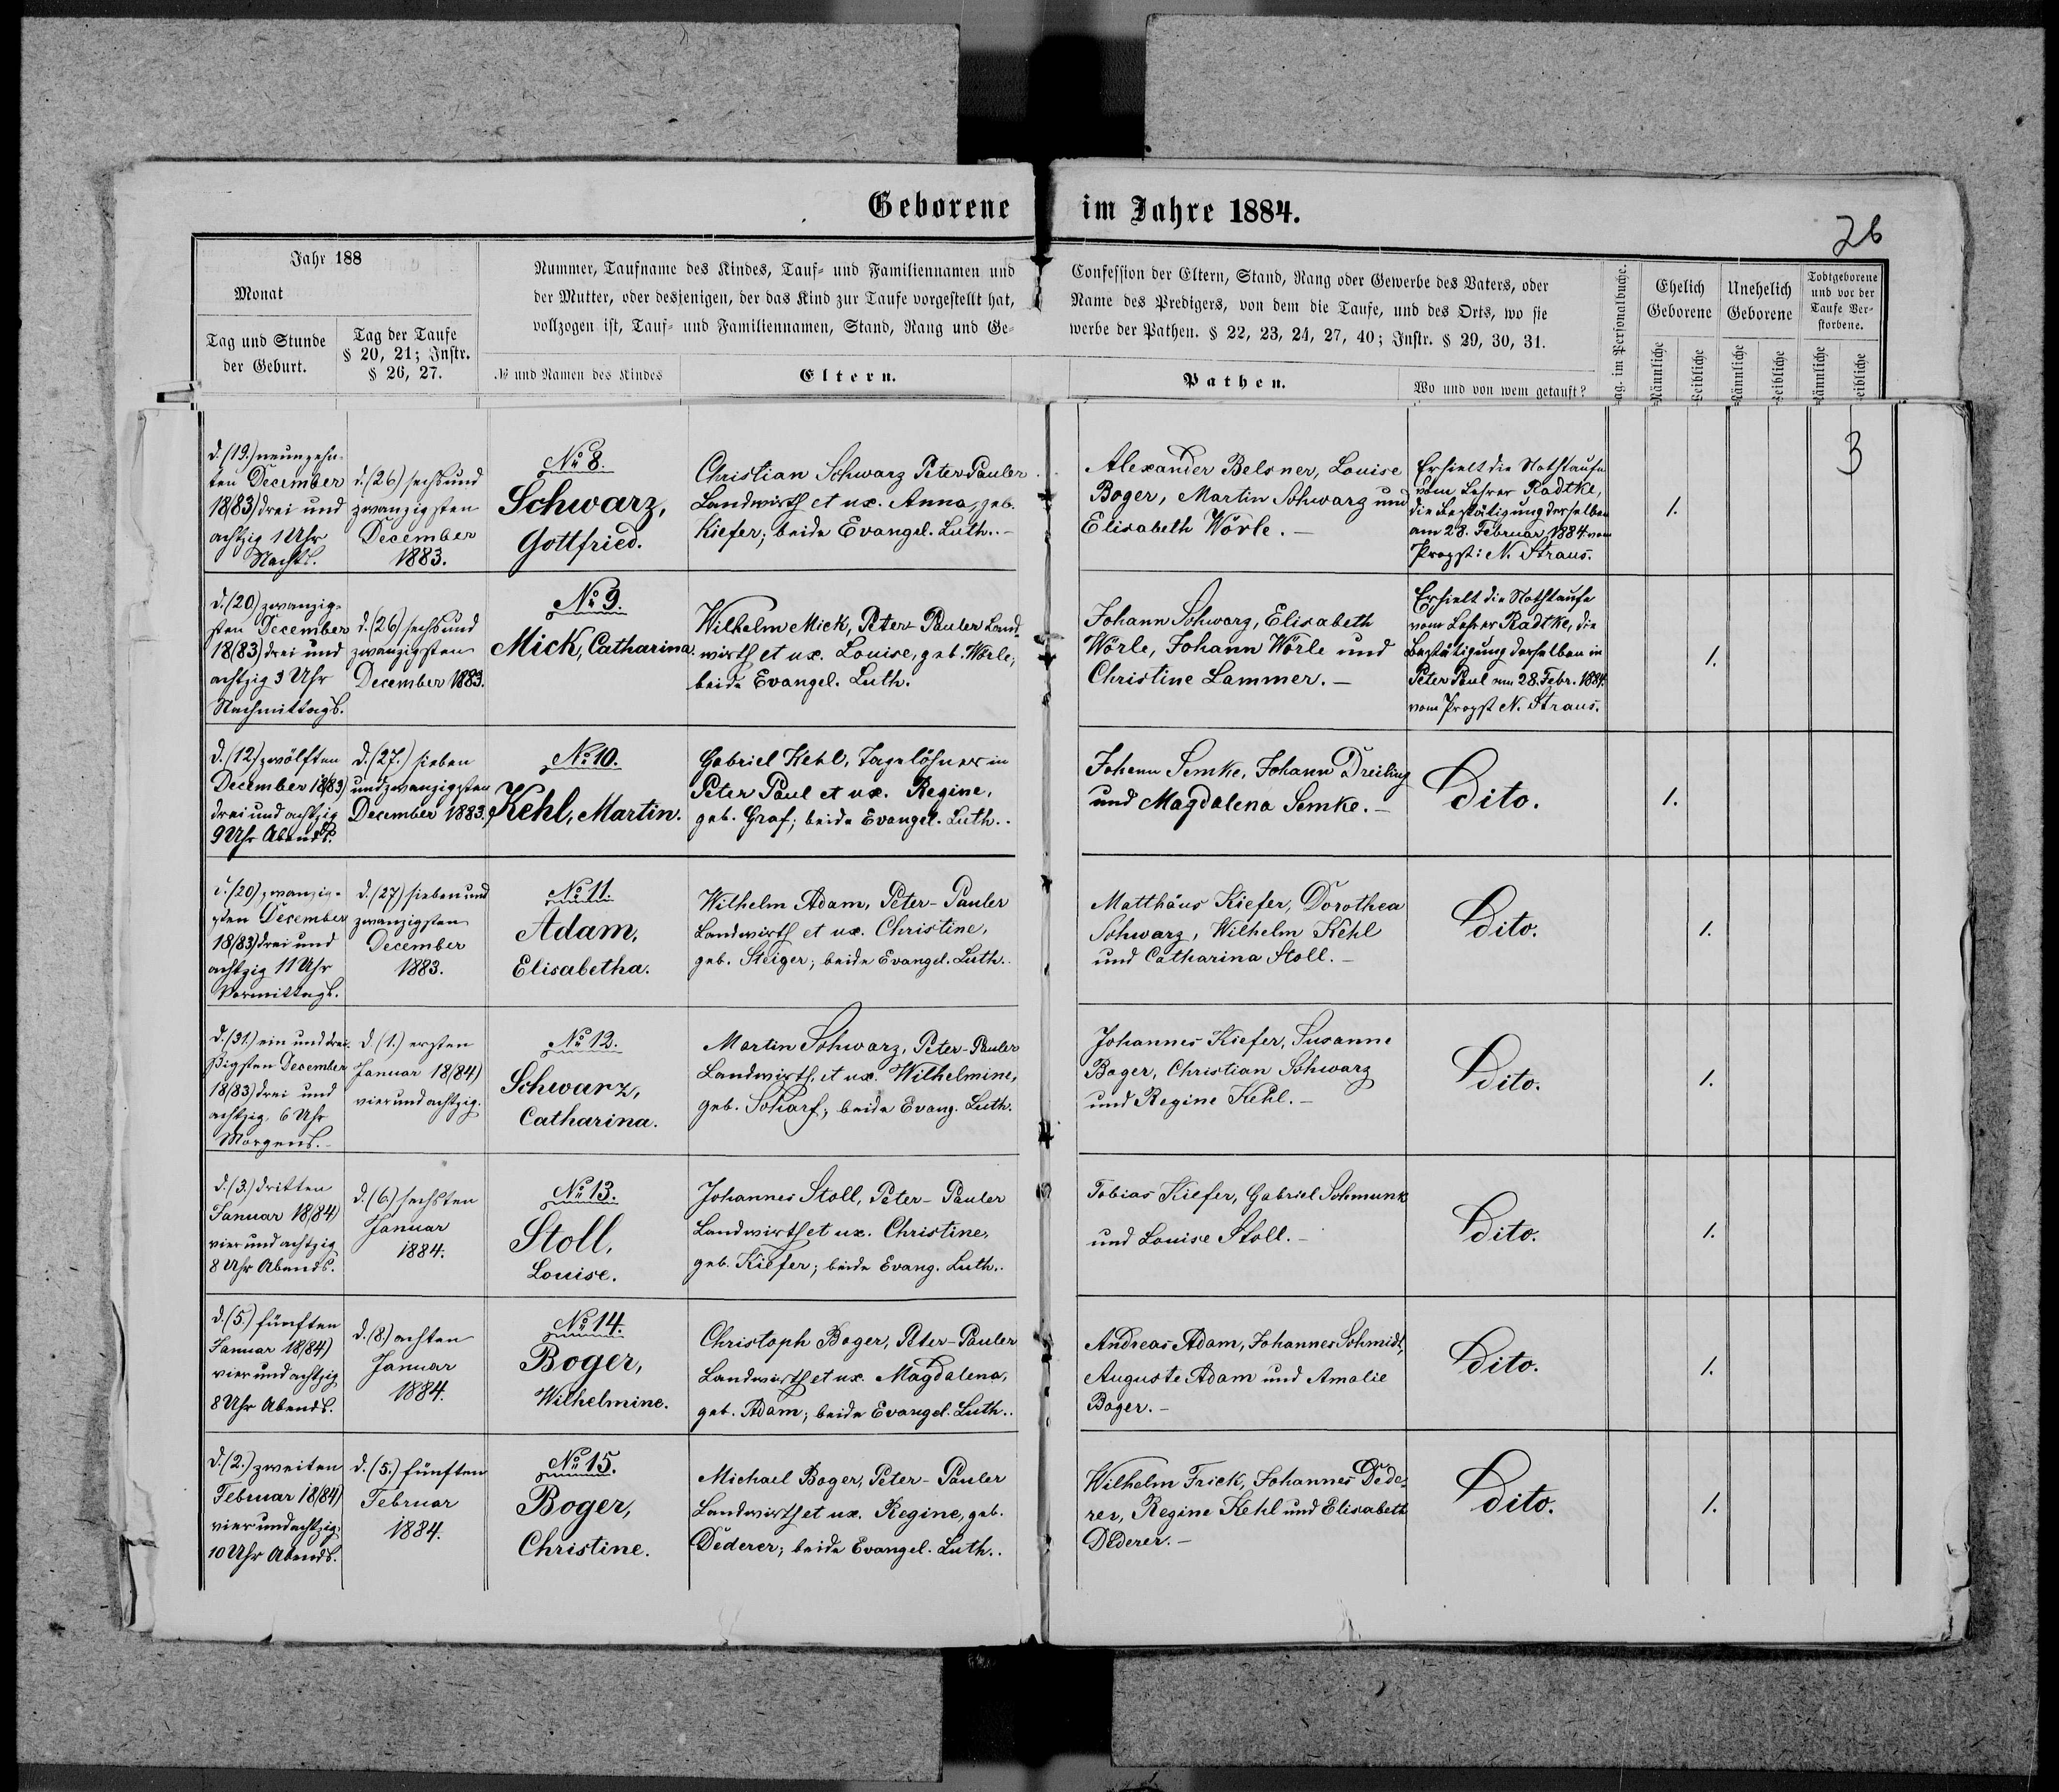 Geborene im Jahre 1884.
26
Jahr 188
Monat
Tag und Stunde
der Geburt.
Tag der Taufe
§ 20, 21; Instr.
§ 26, 27.
Nummer, Taufname des Kindes, Tauf- und Familiennamen und
der Mutter, oder desjenigen, der das Kind zur Taufe vorgestellt hat,
vollzogen ist, Tauf- und Familiennamen, Stand, Rang und Ge-
№ und Namen des Kindes
Eltern.
Confession der Eltern, Stand, Rang oder Gewerbe des Vaters, oder
Name des Predigers, von dem die Taufe, und des Orts, wo sie
werbe der Pathen. § 22, 23, 24, 27, 40; Instr. § 29, 30, 31.
Pathen.
Wo und von wem getauft?
ag. im Personalbuche.
Ehelich
Geborene
Unehelich
Geborene
Todtgeborene
und vor der
Taufe Ver-
storbene.
Männliche
Weibliche
Männliche
Weibliche
Männliche
Weibliche
3
d. (19.) neunzehn-
ten December
18(83) drei und
achtzig 1 Uhr
Nachts.
d. (26) sechsund
zwanzigsten
December
1883.
No 8.
Schwarz,
Gottfried.
Christian Schwarz Peter Pauler
Landwirth et ux. Anna, geb.
Kiefer; beide Evangel. Luth. -
Alexander Belsner, Louise
Boger, Martin Schwarz und
Elisabeth Wörle. -
Erhielt die Nothtaufe
vom Lehrer Radtke,
die Bestätigung derselben
am 28. Februar 1884 vom
Propst: N. Straus.
1.
d. (20) zwanzig-
sten December
18(83) drei und
achtzig 3 Uhr
Nachmittags.
d. (26) sechsund
zwanzigsten
December 1883.
No 9.
Mick, Catharina.
Wilhelm Mick, Peter-Pauler Land-
wirth et ux. Louise, geb. Wörle;
beide Evangel. Luth.
Johann Schwarz, Elisabeth
Wörle, Johann Wörle und
Christine Lammer. -
Erhielt die Nothtaufe
vom Lehrer Radtke, die
Bestätigung derselben in
Peter Paul am 28. Febr. 1884.
vom Propst N. Straus.
1.
d. (12) zwölften
December 18(83)
drei und achtzig
9 Uhr Abends.
d. (27.) sieben
und zwanzigsten
December 1883.
No 10.
Kehl, Martin.
Gabriel Kehl, Tagelöhner in
Peter Paul et ux. Regine,
geb. Graf; beide Evangel. Luth..
Johann Semke, Johann Dreiling
und Magdalena Semke. -
Dito.
1.
d. (20) zwanzig-
sten December
18(83) drei und
achtzig 11 Uhr
Vormittags.
d. (27) sieben und
zwanzigsten
December
1883.
No 11.
Adam,
Elisabetha.
Wilhelm Adam, Peter-Pauler
Landwirth et ux. Christine,
geb. Steiger; beide Evangel. Luth..
Matthäus Kiefer, Dorothea
Schwarz, Wilhelm Kehl
und Catharina Stoll. -
Dito.
1.
d. (31.) ein und drei-
ßigsten December
18(83) drei und
achtzig, 6 Uhr
Morgens. -
d. (1.) ersten
Januar 18(84)
vier und achtzig.
No 12.
Schwarz,
Catharina.
Martin Schwarz, Peter-Pauler
Landwirth et ux. Wilhelmine,
geb. Scharf; beide Evang. Luth.
Johannes Kiefer, Susanne
Boger, Christian Schwarz
und Regine Kehl. -
Dito.
1.
d. (3.) dritten
Januar 18(84)
vier und achtzig
8 Uhr Abends.
d. (6.) sechsten
Januar
1884.
No 13.
Stoll,
Louise.
Johannes Stoll, Peter-Pauler
Landwirth et ux. Christine,
geb. Kiefer; beide Evang. Luth..
Tobias Kiefer, Gabriel Schmunk
und Louise Stoll. -
Dito.
1.
d. (5.) fünften
Januar 18(84)
vier und achtzig
8 Uhr Abends.
d. (8.) achten
Januar
1884.
No 14.
Boger,
Wilhelmine.
Christoph Boger, Peter-Pauler
Landwirth et ux. Magdalena,
geb. Adam; beide Evangel. Luth..
Andreas Adam, Johannes Schmidt,
Auguste Adam und Amalie
Boger. -
Dito.
1.
d. (2.) zweiten
Februar 18(84)
vier und achtzig.
10 Uhr Abends.
d. (5.) fünften
Februar
1884.
No 15.
Boger,
Christine.
Michael Boger, Peter-Pauler
Landwirth et ux. Regine, geb.
Dederer; beide Evangel. Luth..
Wilhelm Frick, Johannes Dede-
rer, Regine Kehl und Elisabeth
Dederer. -
Dito.
1.